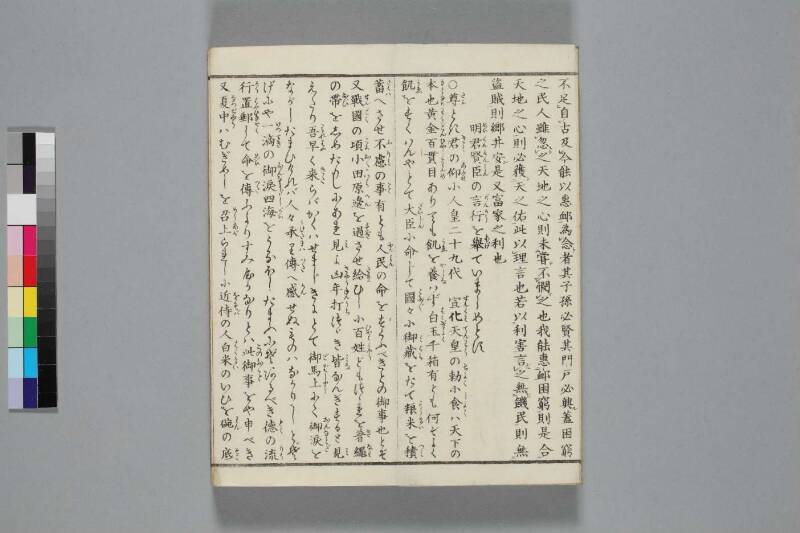 不足自古及今能以恵邺為念者其子孫必賢其門戸必興蓋困窮
之民人雖忽之天地之心則未甞不憫之也我能恵邺困窮則是合
天地之心則必獲天之佑此以理言也若以利害言之無饑民則無
盗賊則郷井安是又富家之利也
明君賢臣の言行を挙ていましめとす
○尊とき君の仰小人皇二十九代 宣化天皇の勅小食ハ天下の
本也黄金百貫目ありても飢を養ハず白玉千箱有とも何ぞよく
飢をすくハんやとて大臣小命して國々小御蔵をたて糧米を積
蓄へさせ不慮の事有とも人民の命をすくふべきとの御事也とぞ
又戦國の頃小田原邊を過させ給ひし小百姓ども
の帯を 山年打つゞき皆なんぎすると見
えたり吾早く来らバかくハせまじきにとて御馬上にて御涙を
ながしたまひけれバ人々承り傳へ感せぬものハなかりしとぞ
げにや一滴の御涙四海をうるほし たまふべき徳の流
行置邺して命を傳ふよりすみやかなりとハ此御事をや申べき
又夏中ハむぎめしを召上られし小近侍の人白米のいひを椀の底